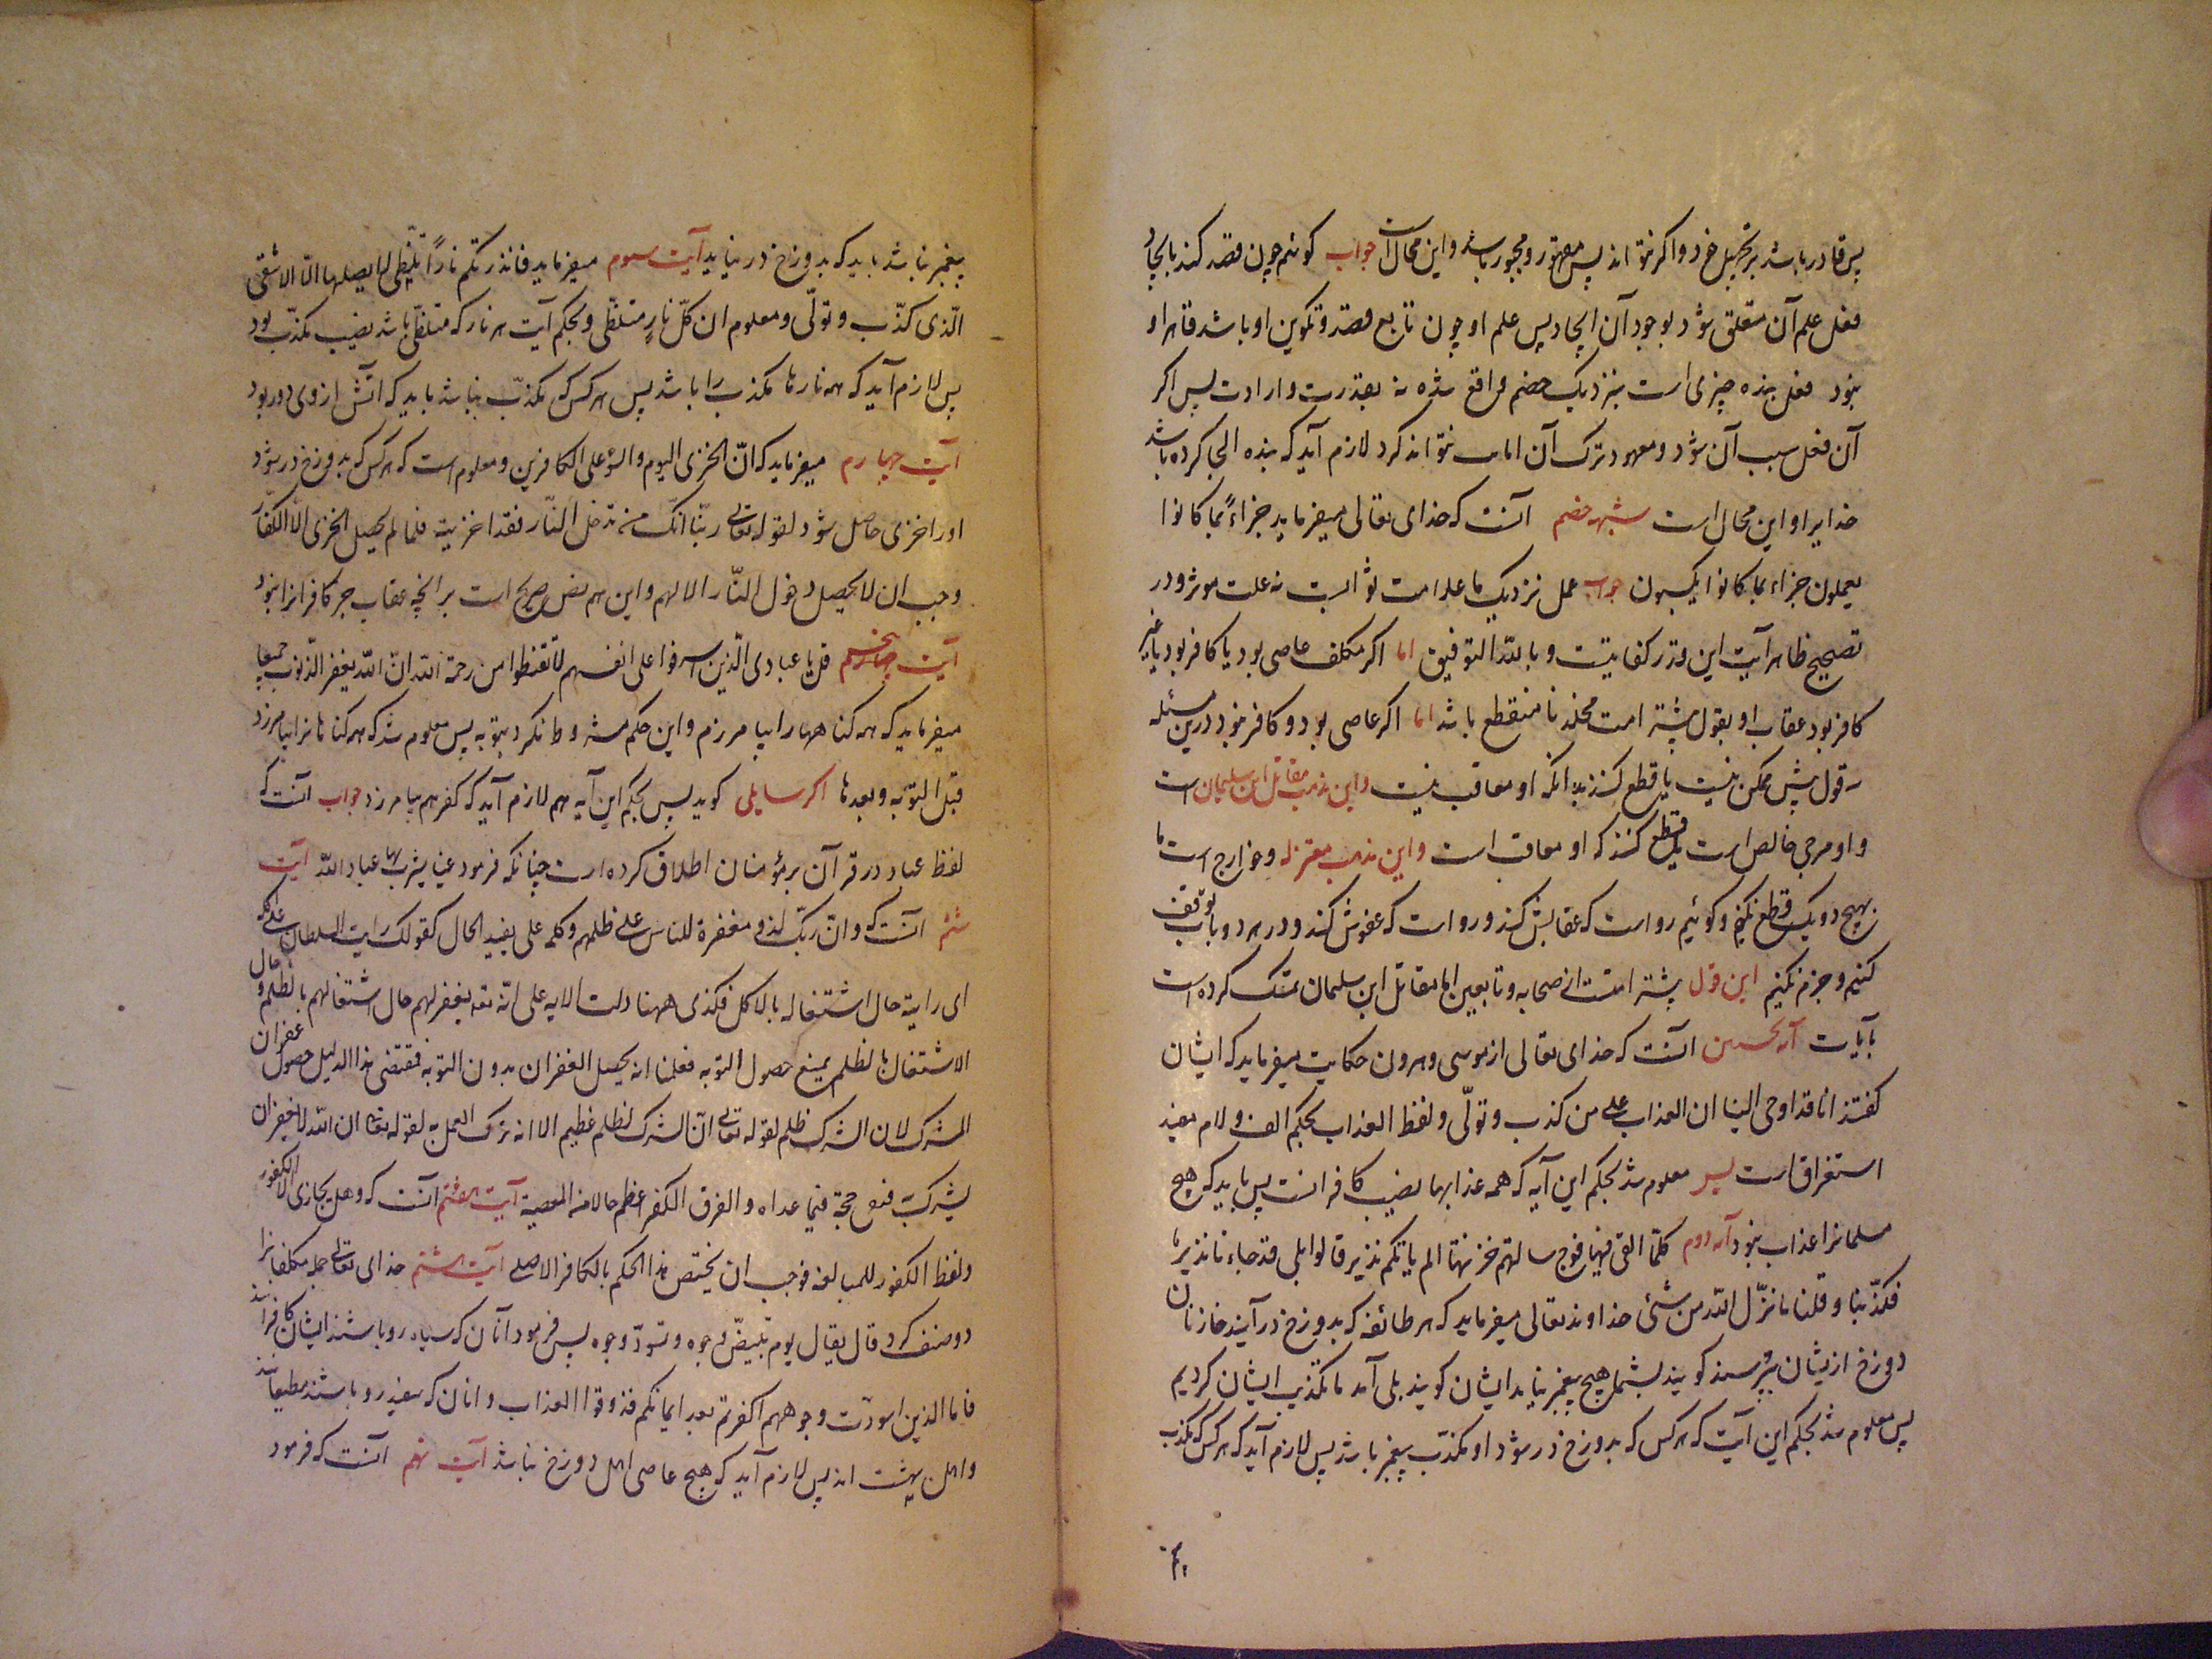 پس قادر باشد بر تجهیل خود و اگر نتواند پس مقهور و مجبور باشد و این محالست جواب گوئیم چون قصد کند بایجاد
فعل علم آن متعلق شود بوجود آن ایجاد پس علم او چون تابع قصد و تکوین او باشد قاهر او
نبود فعل بنده چیزی است بنزدیک خصم واقع شده نه بقدرت و ارادت پس اگر
آن فعل سبب آن شود و معهود ترک آن اثابت نتواند کرد لازم آید که بنده الجا کرده باشد
خدایرا و این محال است شبهه خصم آنست که خدای تعالی میفرماید جزاءً بما کانوا
یعملون جزاء بما کانوا یکسبون جواب عمل نزدیک ما علامت ثوابست نه علت موثر و در
تصحیح ظاهر آیت این قدر کفایتست و بالله التوفیق اما اگر مکلف عاصی بود یا کافر بود یا غیر
کافر بود عقاب او بقول بیشتر امت مخلد نا منقطع باشد اما اگر عاصی بود و کافر نبود درین مسئله
سه قول بیش ممکن نیست یا قطع کنند بدانکه او معاقب نیست و این مذهب مقاتل ابن سلیمان است
و او مرجی خالص است یا قطع کنند که او معاقب است و این مذهب معتزله و خوارج است یا
بهیچ دو یک قطع نکنیم و گوئیم رواست که عقابش کند و رواست که عفوش کند و در هر دو باب توقف
کنیم و جزم نکنیم این قول بیشتر امتست از صحابه و تابعین اما مقاتل ابن سلیمان تمسک کرده است
بآیات آیه نخستین آنست که خدای تعالی از موسی و هرون حکایت میفرماید که ایشان
گفتند انا قد اوحی الینا ان العذاب علی من کذب و تولّی و لفظ العذاب بحکم الف و لام مفید
استغراق است پس معلوم شد بحکم این آیه که همه عذابها نصیب کافرانست پس باید که هیچ
مسلمانرا عذاب نبود آیه دوم کلّما القی فیها فوج سالهم خزنتها الم یاتکم نذیر قالوا بلی قد جاءنا نذیر
فکذّبنا و قلنا ما نزّل الله من شئی خداوند تعالی میفرماید که هر طائفه که بدوزخ درآیند خازنان
دوزخ ازیشان بپرسند گویند بشما هیچ پیغمبر نیامد ایشان گویند بلی آمد ما تکذیب ایشان کردیم
پس معلوم شد بحکم این آیت که هر کس که بدوزخ در شود او مکذّب پیغمبر باشد پس لازم آید که هر کس که مکذب
پیغمبر نباشد باید که بدوزخ در نیاید آیت سوم میفرماید فانذرتکم نارًا تلظّی لا یصلیها الّا الاشقی
الّذی کذّب و تولّی و معلوم ان کلّ نارٍ متلظّی و بحکم آیت هر نار که متلظّی باشد نصیب مکذّب بود
پس لازم آید که همه نارها مکذب را باشد پس هر کس که مکذّب نباشد باید که آتش از وی دور بود
آیت چهارم میفرماید که انّ الخزی الیوم و السّؤ علی الکافرین و معلوم است که هر کس که بدوزخ در شود
او را خزی حاصل شود لقوله تعالی ربّنا انّک من تدخل النّار فقد اخزیته فلما لم یحصل الخزی الّا للکفار
وجب ان لا یحصل دخول النّار الا لهم و این هم نص صریح است بر آنچه عقاب جز کافرانرا نبود
آیت پنجم قل یا عبادی الّذین اسرفوا علی انفسهم لا تقنطوا من رحمة الله انّ الله یغفر الذنوب جمیعا
میفرماید که همه گناهها را بیامرزم و این حکم مشروط نکرد بتوبه پس معلوم شد که همه گناهانرا بیامرزد
قبل التوبه و بعدها اگر سایلی گوید پس بحکم این آیه هم لازم آید که کفر هم بیامرزد جواب آنست که
لفظ عباد در قرآن بر مؤمنان اطلاق کرده است چنانکه فرمود عینا یشرب بها عباد الله آیت
ششم آنست که و انّ ربّک لذو مغفرة للناس علی ظلمهم و کلمه علی یفید الحال کقولک رایت السلطان علی اکله
ای رایته حال اشتغاله بالاکل فکذی ههنا دلت الایه علی انّه تعه یغفر لهم حال اشتغالهم بالظلم و حال
الاشتغال بالظلم یمنع حصول التوبه فعلمنا انه یحصل الغفران بدون التوبه فمقتضی هذا الدلیل حصول غفران
الشرک لان الشرک ظلم لقوله تعالی انّ الشرک لظلم عظیم الا انه ترک العمل به لقوله تعالی ان الله لا یغفر ان
یشرک به فبقی حجة فیما عداه و الفرق الکفر اعظم حالا من المعصیة آیت هفتم آنست که و هل یجازی الا الکفور
و لفظ الکفور للمبالغه فوجب ان یختص هذا الحکم بالکافر الاصلی آیت هشتم خدای تعالی جمله مکلفانرا
دو صنف کرد قال یقال یوم تبیضّ وجوه و تسودّ وجوه پس فرمود آنان که سیاه رو باشند ایشان کافرانند
فاما الذین اسودّت وجوههم اکفرتم بعد ایمانکم فذوقوا العذاب و انان که سفید رو باشند مطیعانند
و اهل بهشت اند پس لازم آید که هیچ عاصی اهل دوزخ نباشد آیت نهم آنست که فرمود